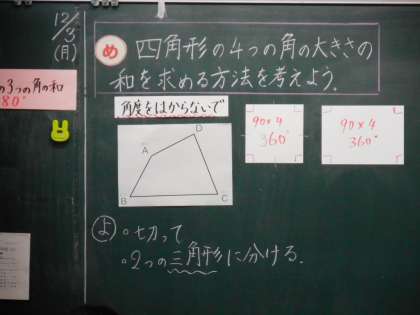 12/3
(月)
め
四角形の4つの角の大きさの
和を求める方法を考えよう。
の3つの角の和
180°
角度をはからないで
90×4
360°
90×4
360°
D
A
B
C
よ
・切って
・2つの三角形に分ける。